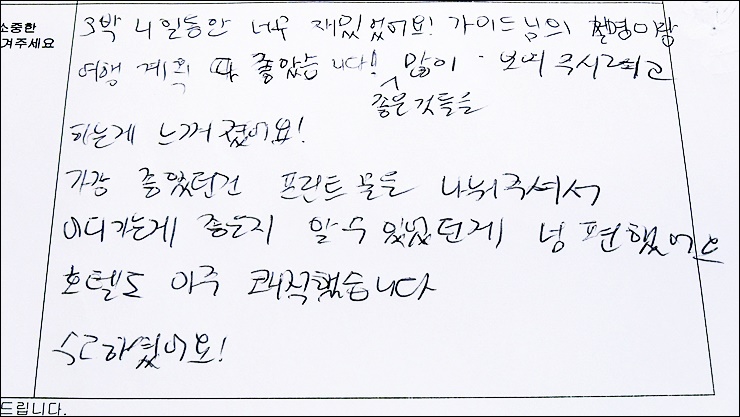 소중한
겨주세요
3박 4일동안 너무 재밌었어요! 가이드님의 설명이랑
여행 계획 다 좋았습니다! 많이 보여주시려고
좋은것들을
하는게 느껴졌어요!
가장 좋았던건 프린트물을 나눠주셔서
어디가는게 좋은지 알 수 있었던게 넘 편했어요
호텔도 아주 쾌적했습니다
수고하셨어요!
드립니다.